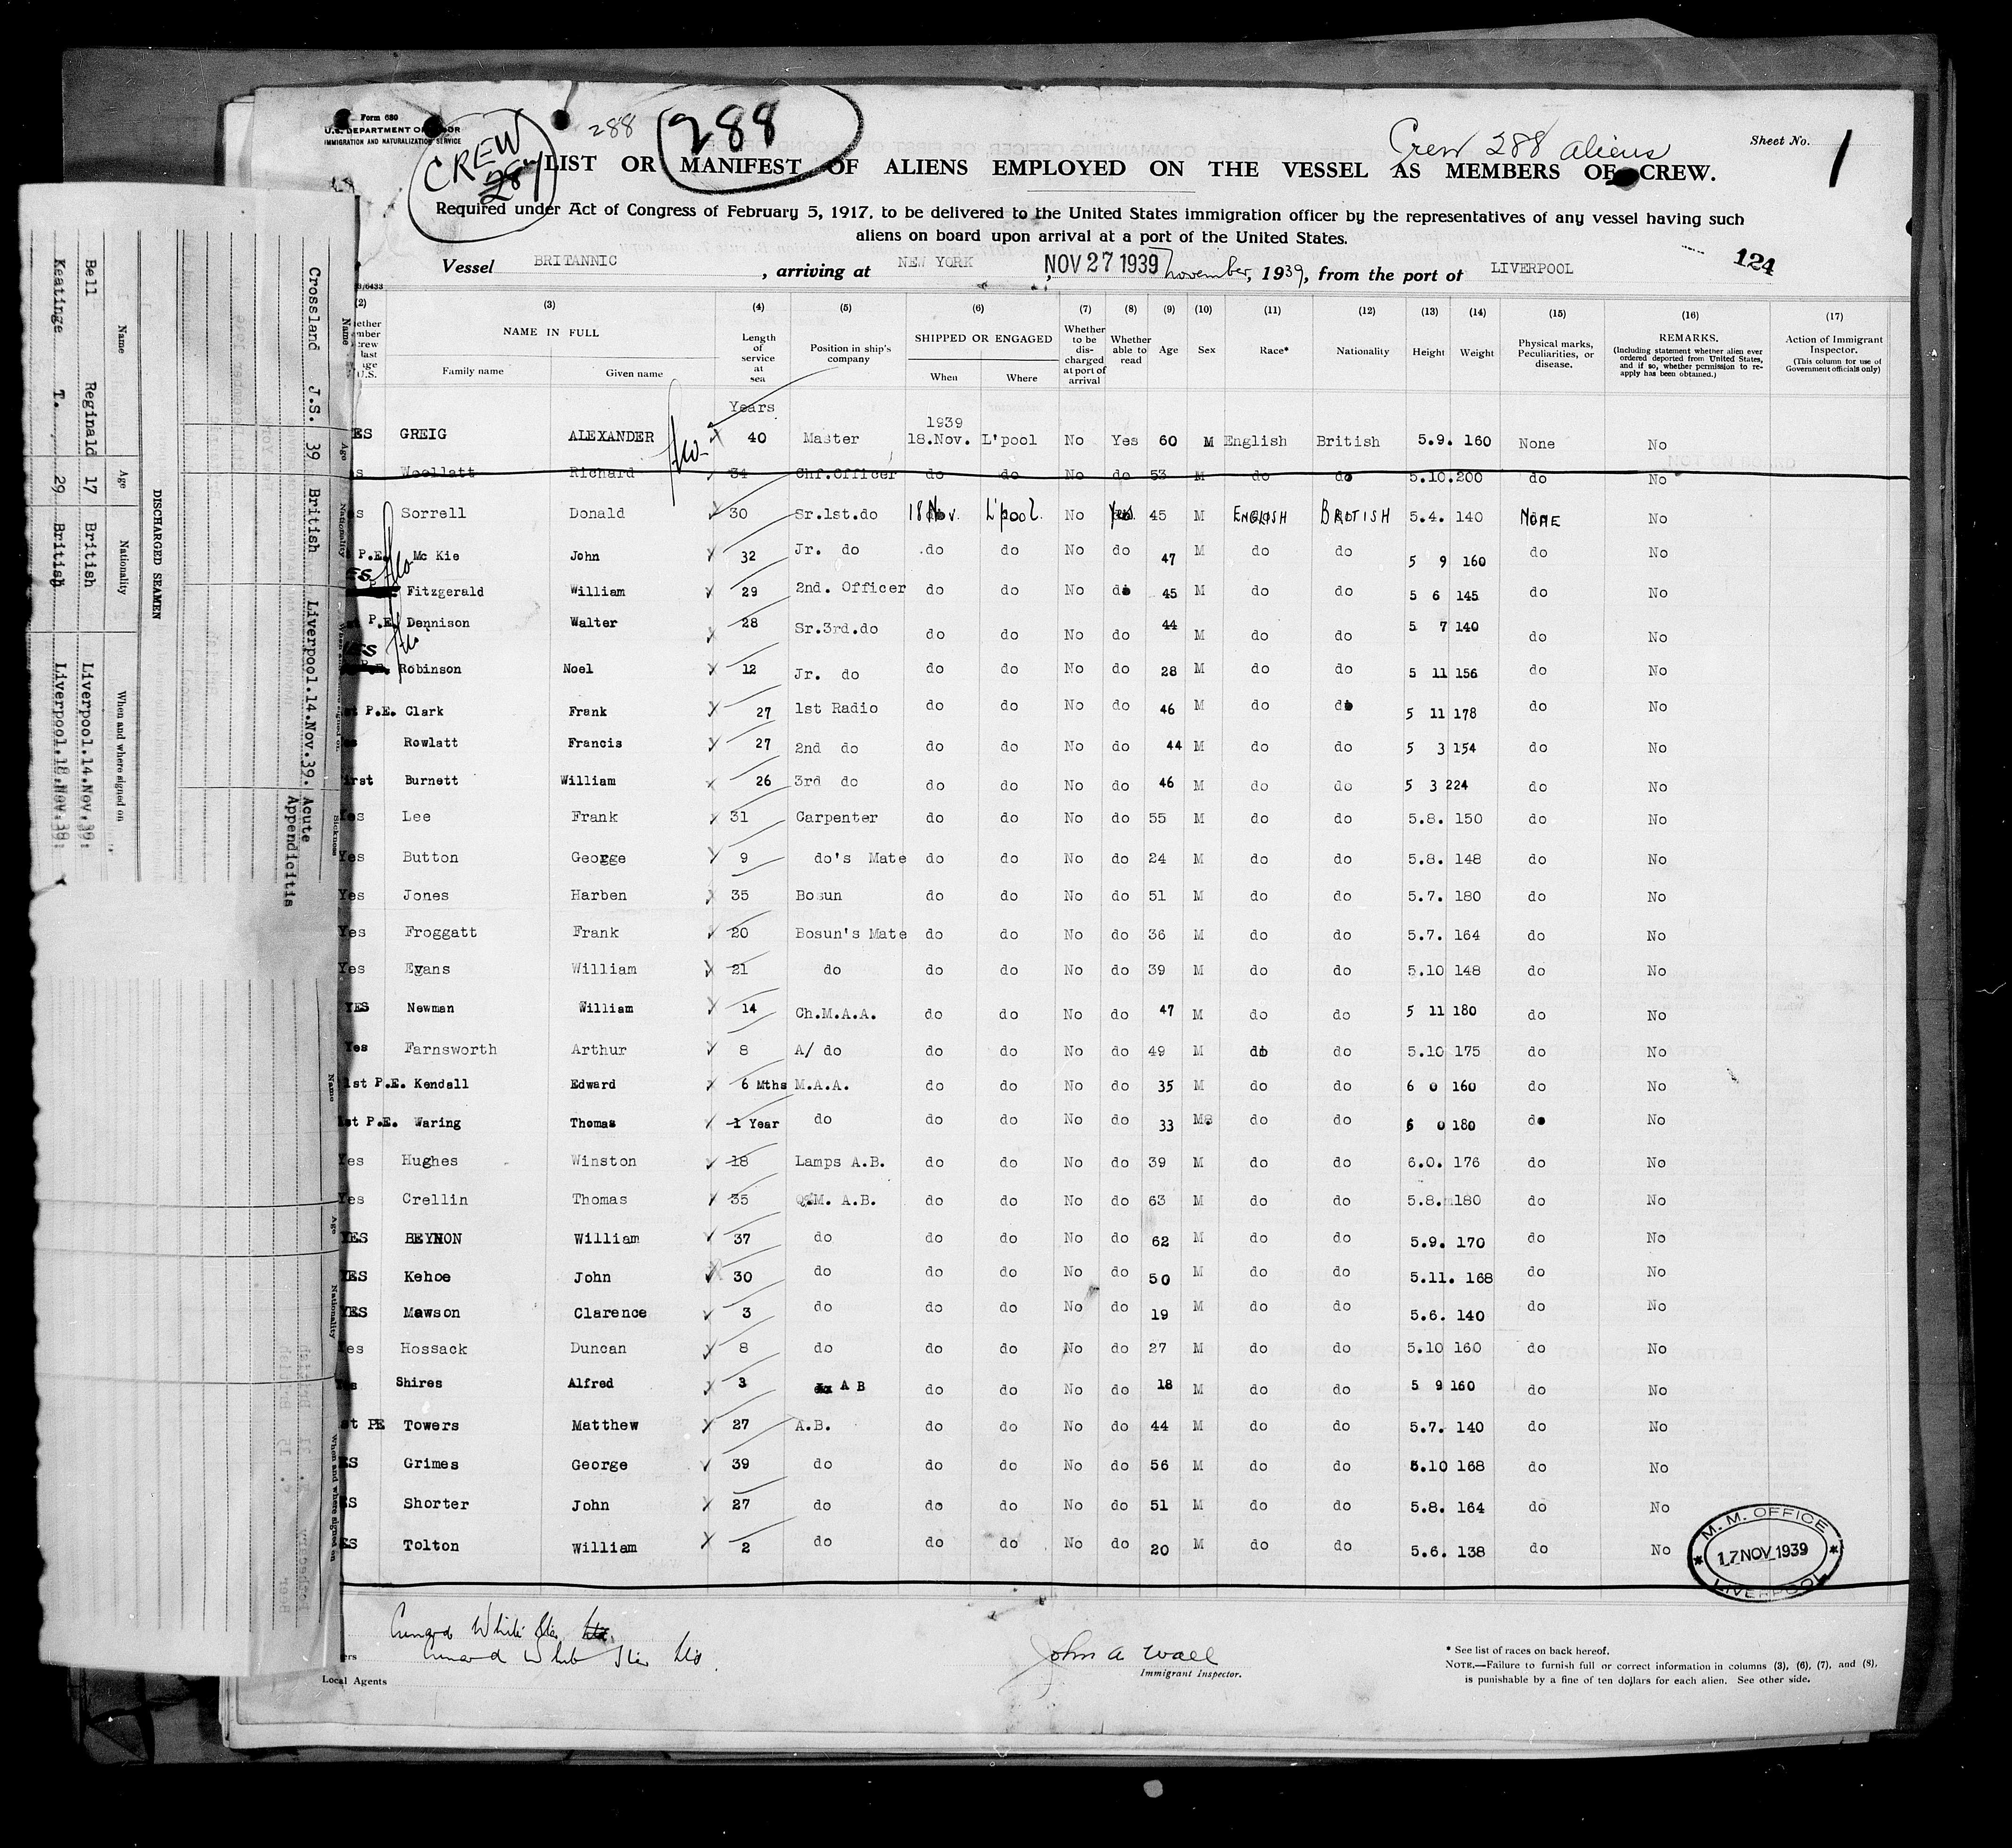 Form 680
U.S. DEPARTMENT OF LABOR
IMMIGRATION AND NATURALIZATION SERVICE
CREW
288
288
Crew 288 aliens
Sheet No. 1
LIST OR MANIFEST OF ALIENS EMPLOYED ON THE VESSEL AS MEMBERS OF CREW.
Required under Act of Congress of February 5, 1917, to be delivered to the United States immigration officer by the representatives of any vessel having such
aliens on board upon arrival at a port of the United States.
124
Vessel BRITANNIC, arriving at NEW YORK NOV 27 1939 November, 1939, from the port of LIVERPOOL
(2) (3) (4) (5) (6) (7) (8) (9) (10) (11) (12) (13) (14) (15) (16) (17)
NAME IN FULL
Family name Given name
Length of service at sea
Position in ship's company
SHIPPED OR ENGAGED
When Where
Whether to be discharged at port of arrival
Whether able to read
Age Sex Race* Nationality Height Weight
Physical marks, Peculiarities, or disease.
REMARKS.
(Including statement whether alien ever ordered deported from United States, and if so, whether permission to re-apply has been obtained.)
Action of Immigrant Inspector.
(This column for use of Government officials only)
Years
1939
ES GREIG ALEXANDER 40 Master 18.Nov. L'pool No Yes 60 M English British 5.9. 160 None No
s Woollatt Richard 34 Chf.Officer do do No do 53 M do do 5.10.200 do No
s Sorrell Donald 30 Sr.1st.do 18 Nov. L'pool No Yes 45 M ENGLISH BRITISH 5.4. 140 NONE No
P.E. Mc Kie John 32 Jr. do do do No do 47 M do do 5 9 160 do No
ES Fitzgerald William 29 2nd. Officer do do No do 45 M do do 5 6 145 do No
st P.E. Dennison Walter 28 Sr.3rd.do do do No do 44 M do do 5 7 140 do No
YES Robinson Noel 12 Jr. do do do No do 28 M do do 5 11 156 do No
st P.E. Clark Frank 27 1st Radio do do No do 46 M do do 5 11 178 do No
Rowlatt Francis 27 2nd do do do No do 44 M do do 5 3 154 do No
irst Burnett William 26 3rd do do do No do 46 M do do 5 3 224 do No
es Lee Frank 31 Carpenter do do No do 55 M do do 5.8. 150 do No
Yes Button George 9 do's Mate do do No do 24 M do do 5.8. 148 do No
Yes Jones Harben 35 Bosun do do No do 51 M do do 5.7. 180 do No
Yes Froggatt Frank 20 Bosun's Mate do do No do 36 M do do 5.7. 164 do No
Yes Evans William 21 do do do No do 39 M do do 5.10 148 do No
YES Newman William 14 Ch.M.A.A. do do No do 47 M do do 5 11 180 do No
Yes Farnsworth Arthur 8 A/ do do do No do 49 M do do 5.10 175 do No
1st P.E. Kendall Edward 6 Mths M.A.A. do do No do 35 M do do 6 0 160 do No
1st P.E. Waring Thomas 1 Year do do do No do 33 M do do 6 0 180 do No
Yes Hughes Winston 18 Lamps A.B. do do No do 39 M do do 6.0. 176 do No
Yes Crellin Thomas 35 Q.M. A.B. do do No do 63 M do do 5.8. 180 do No
YES BEYNON William 37 do do do No do 62 M do do 5.9. 170 do No
YES Kehoe John 30 do do do No do 50 M do do 5.11. 168 do No
YES Mawson Clarence 3 do do do No do 19 M do do 5.6. 140 do No
Yes Hossack Duncan 8 do do do No do 27 M do do 5.10 160 do No
Shires Alfred 3 A B do do No do 18 M do do 5 9 160 do No
st PE Towers Matthew 27 A.B. do do No do 44 M do do 5.7. 140 do No
ES Grimes George 39 do do do No do 56 M do do 5.10 168 do No
ES Shorter John 27 do do do No do 51 M do do 5.8. 164 do No
ES Tolton William 2 do do do No do 20 M do do 5.6. 138 do No
M. M. OFFICE
* 17 NOV 1939 *
LIVERPOOL
Cunard White Star
Cunard White Star Ltd.
Local Agents
John A Wall
Immigrant Inspector.
* See list of races on back hereof.
NOTE.—Failure to furnish full or correct information in columns (3), (6), (7), and (8),
is punishable by a fine of ten dollars for each alien. See other side.
DISCHARGED SEAMEN
Name Age Nationality When and where signed on
Bell Reginald 17 British Liverpool.14.Nov.39.
Keatinge T. 29 British Liverpool.18.Nov.39.
Name Age Nationality When and where signed on Sickness
Crossland J.S. 39 British Liverpool.14.Nov.39. Acute
Appendicitis
Name Age Nationality When and where signed on